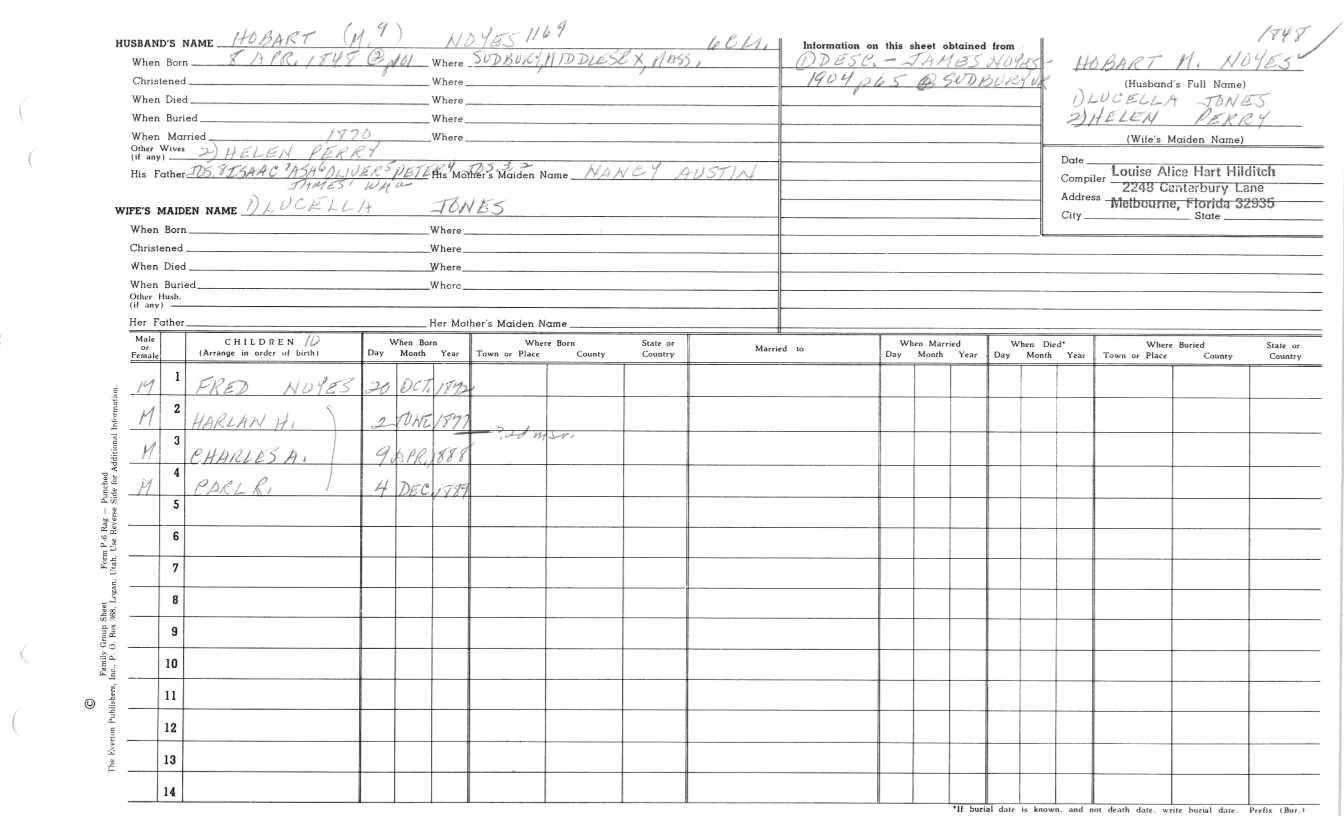 1848
HUSBAND'S NAME HOBART (M. 9) NOYES 1169 6CH.
When Born 8 APR. 1848 @ p101 Where SUDBURY, MIDDLESEX, MASS.
Christened Where
When Died Where
When Buried Where
When Married 1870 Where
Other Wives (if any) 2) HELEN PERRY
His Father JOS. 8 ISAAC 7 ASA 6 OLIVER 5 PETER 4 JOS. 3, 2 His Mother's Maiden Name NANCY AUSTIN
JAMES 1 WM
WIFE'S MAIDEN NAME 1) LUCELLA JONES
When Born Where
Christened Where
When Died Where
When Buried Where
Other Husb. (if any)
Her Father Her Mother's Maiden Name
Information on this sheet obtained from
① DESC. - JAMES NOYES -
1904 p65 @ SUDBURY VR
HOBART M. NOYES
(Husband's Full Name)
1) LUCELLA JONES
2) HELEN PERRY
(Wife's Maiden Name)
Date
Compiler Louise Alice Hart Hilditch
Address 2248 Canterbury Lane
Melbourne, Florida 32935
City State
Male or Female CHILDREN 10 (Arrange in order of birth) When Born Day Month Year Where Born Town or Place County State or Country Married to When Married Day Month Year When Died* Day Month Year Where Buried Town or Place County State or Country
M 1 FRED NOYES 20 OCT. 1872
M 2 HARLAN H. 2 JUNE 1877
2d mar.
M 3 CHARLES A. 9 APR. 1888
M 4 CARL R. 4 DEC. 1889
5
6
7
8
9
10
11
12
13
14
*If burial date is known, and not death date, write burial date. Prefix (Bur.)
© Family Group Sheet Form P-6 Rag — Punched
The Everton Publishers, Inc., P. O. Box 368, Logan, Utah. Use Reverse Side for Additional Information.